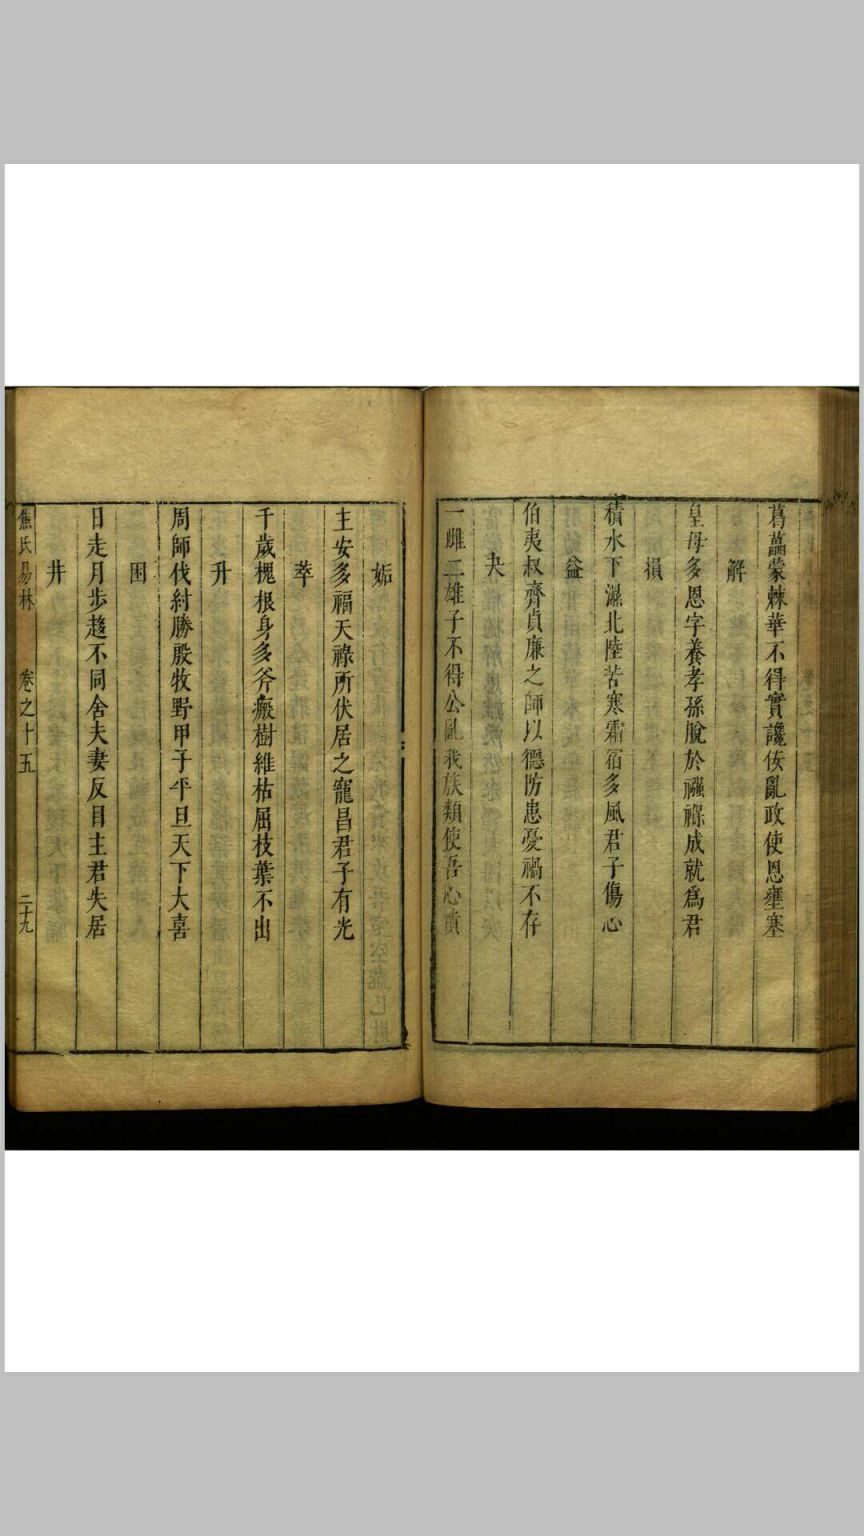 葛藟蒙棘華不得實讒佞亂政使恩壅塞
解
皇母多恩字養孝孫脫於襁褓成就爲君
損
積水下濕北陸苦寒霜宿多風君子傷心
益
伯夷叔齊貞廉之師以德防患憂禍不存
夬
一雌二雄子不得公亂我族類使吾心憒
姤
主安多福天祿所伏居之寵昌君子有光
萃
千歲槐根身多斧瘢樹維枯屈枝葉不出
升
周師伐紂勝殷牧野甲子平旦天下大喜
困
日走月步趍不同舍夫妻反目主君失居
井
焦氏易林 卷之十五 二十九